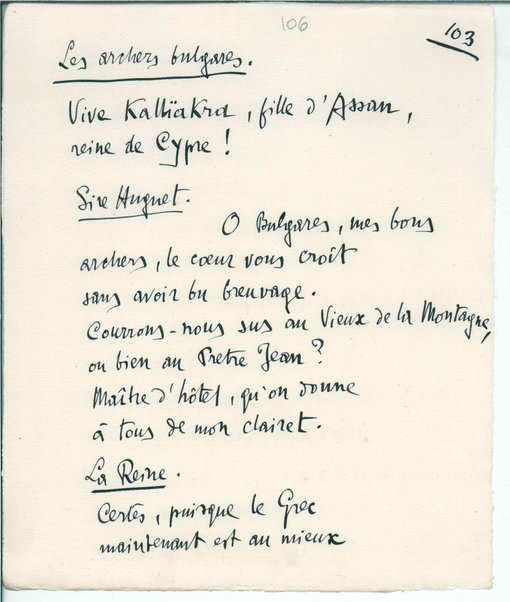 106
103
Les archers bulgares.
Vive Kalliäkra, fille d'Assan,
reine de Cypre !
Sire Huguet.
O Bulgares, mes bons
archers, le cœur vous croît
sans avoir bu breuvage.
Courrons-nous sus au Vieux de la Montagne,
ou bien au Prêtre Jean ?
Maître d'hôtel, qu'on donne
à tous de mon clairet.
La Reine.
Certes, puisque le Grec
maintenant est au mieux